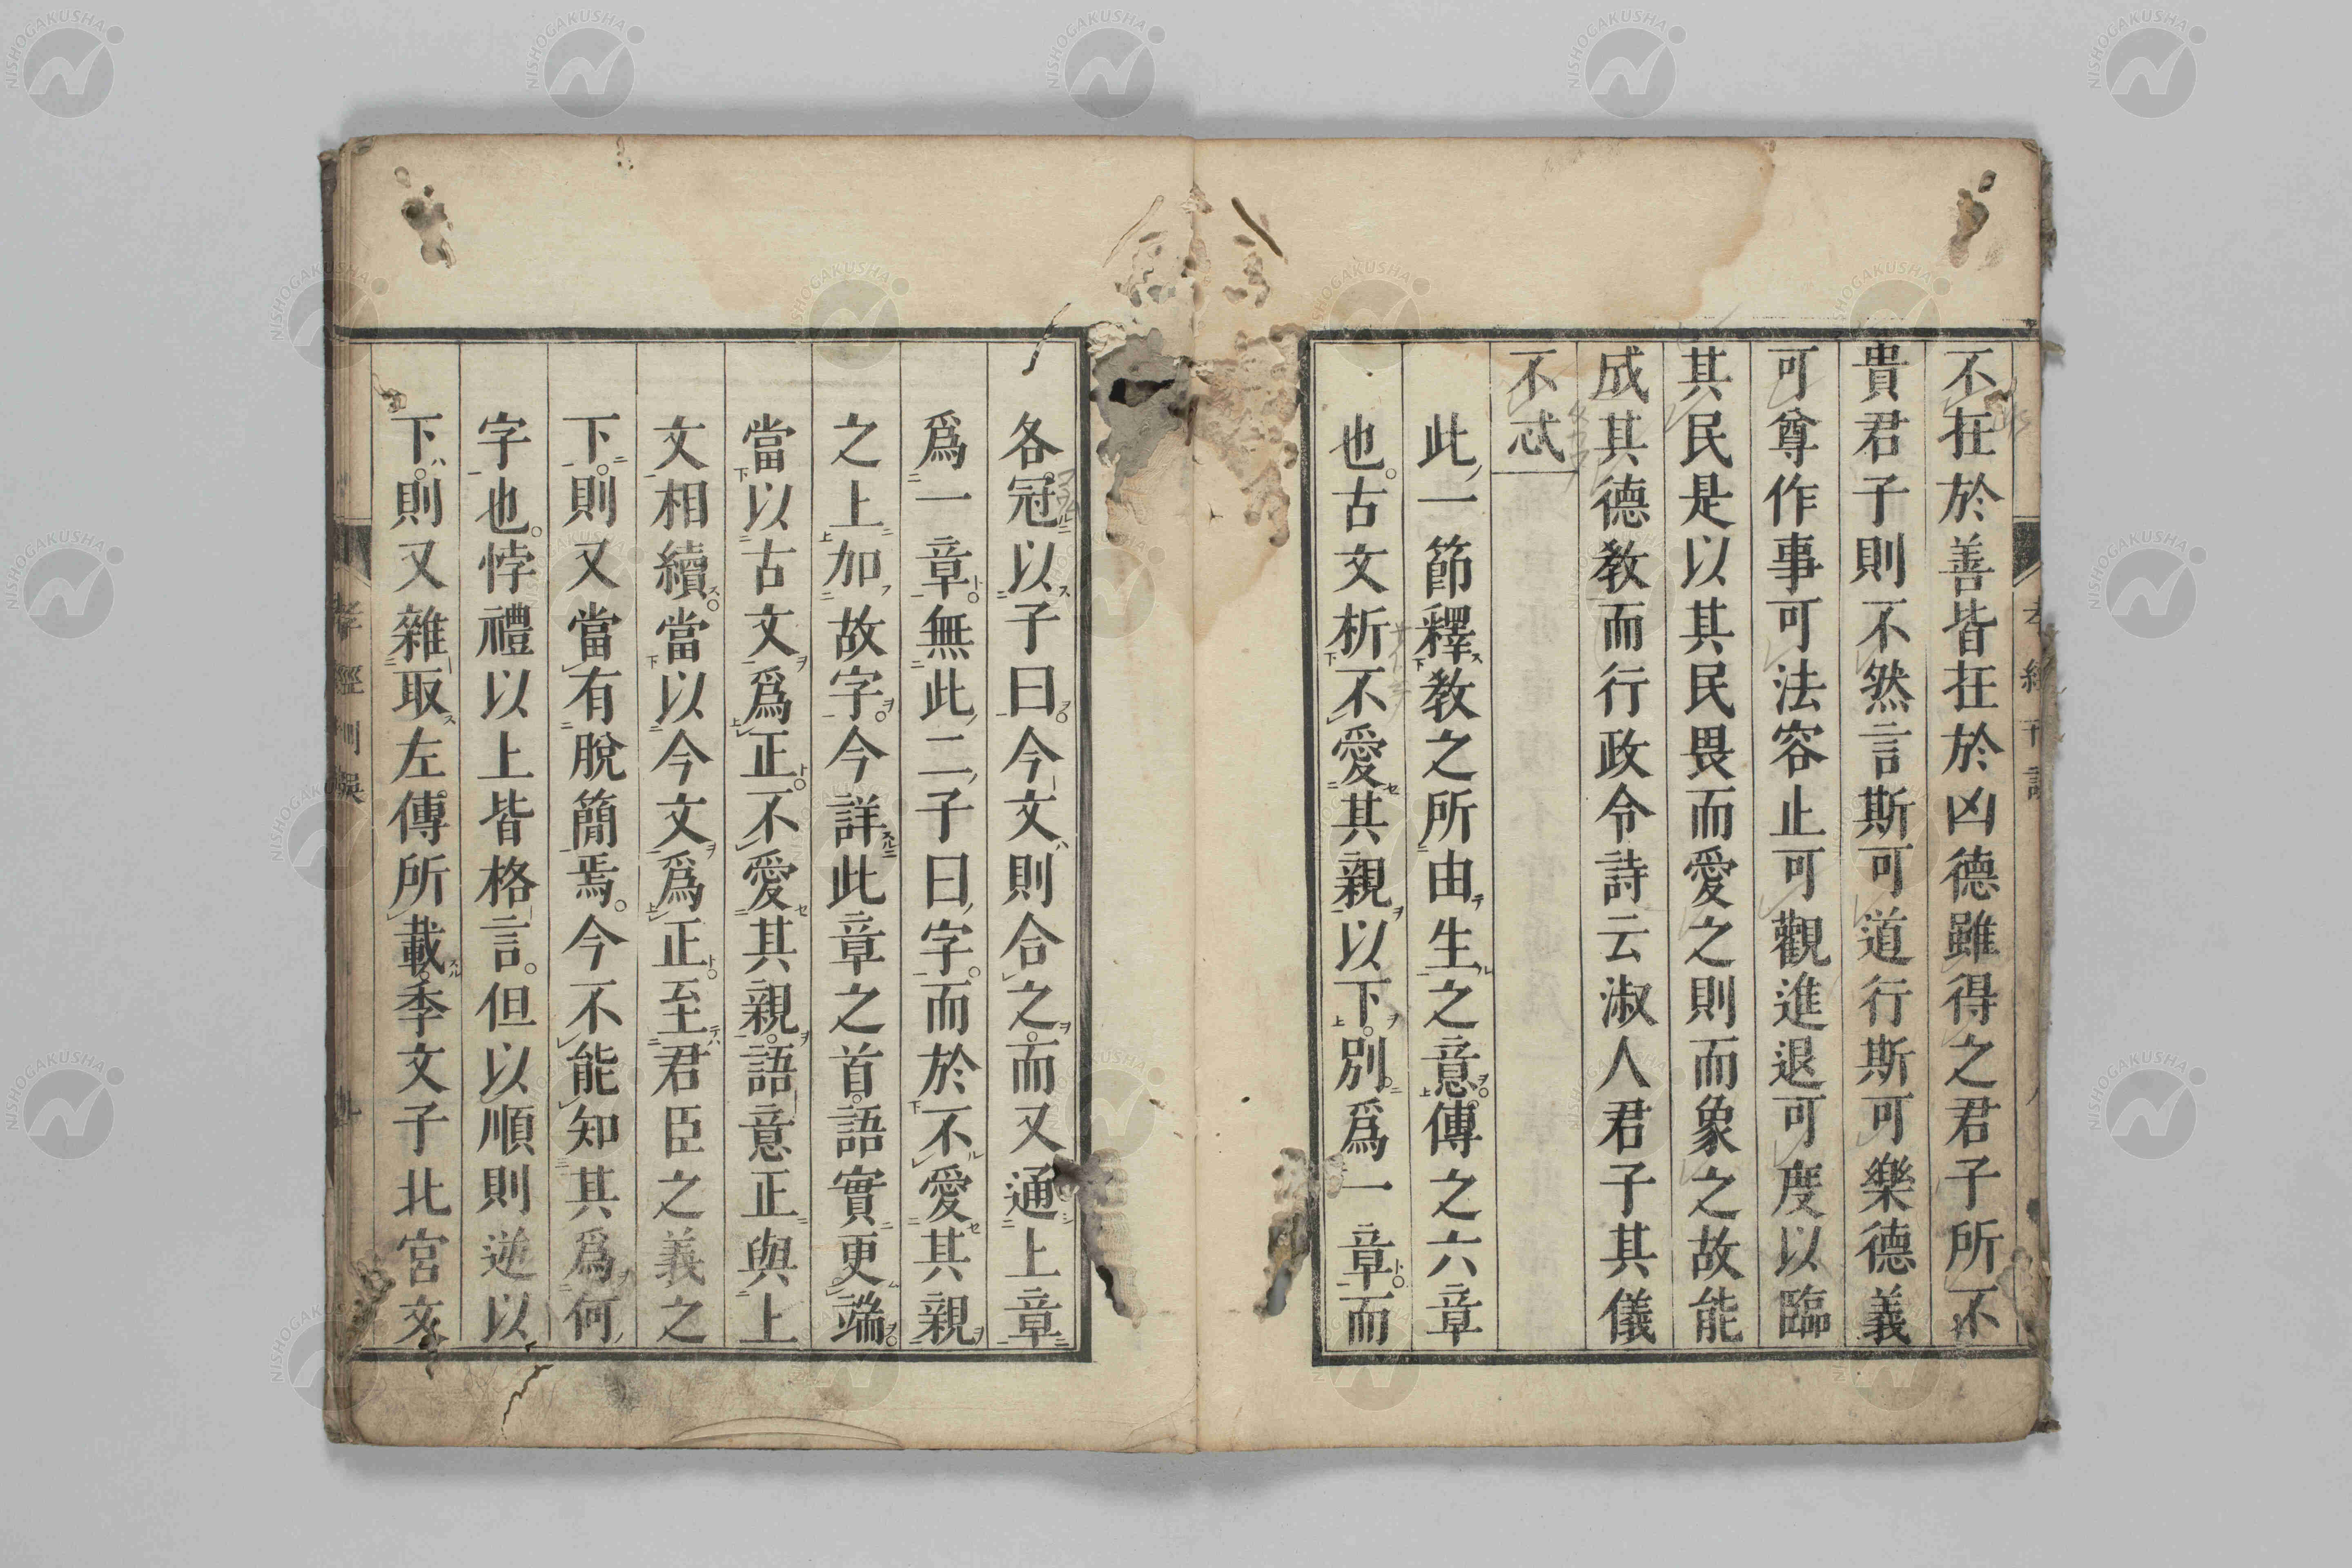 不在於善皆在於凶德雖得之君子所不
貴君子則不然言斯可道行斯可樂德義
可尊作事可法容止可觀進退可度以臨
其民是以其民畏而愛之則而象之故能
成其德教而行政令詩云淑人君子其儀
不忒
此一節釋教之所由生之意傳之六章
也古文析不愛其親以下別爲一章而
各冠以子曰今文則合之而又通上章
爲一章無此二子曰字而於不愛其親
之上加故字今詳此章之首語實更端
當以古文爲正不愛其親語意正與上
文相續當以今文爲正至君臣之義之
下則又當有脫簡焉今不能知其爲何
字也悖禮以上皆格言但以順則逆以
下則又雜取左傳所載季文子北宮文
孝經刊誤
NISHOGAKUSHA